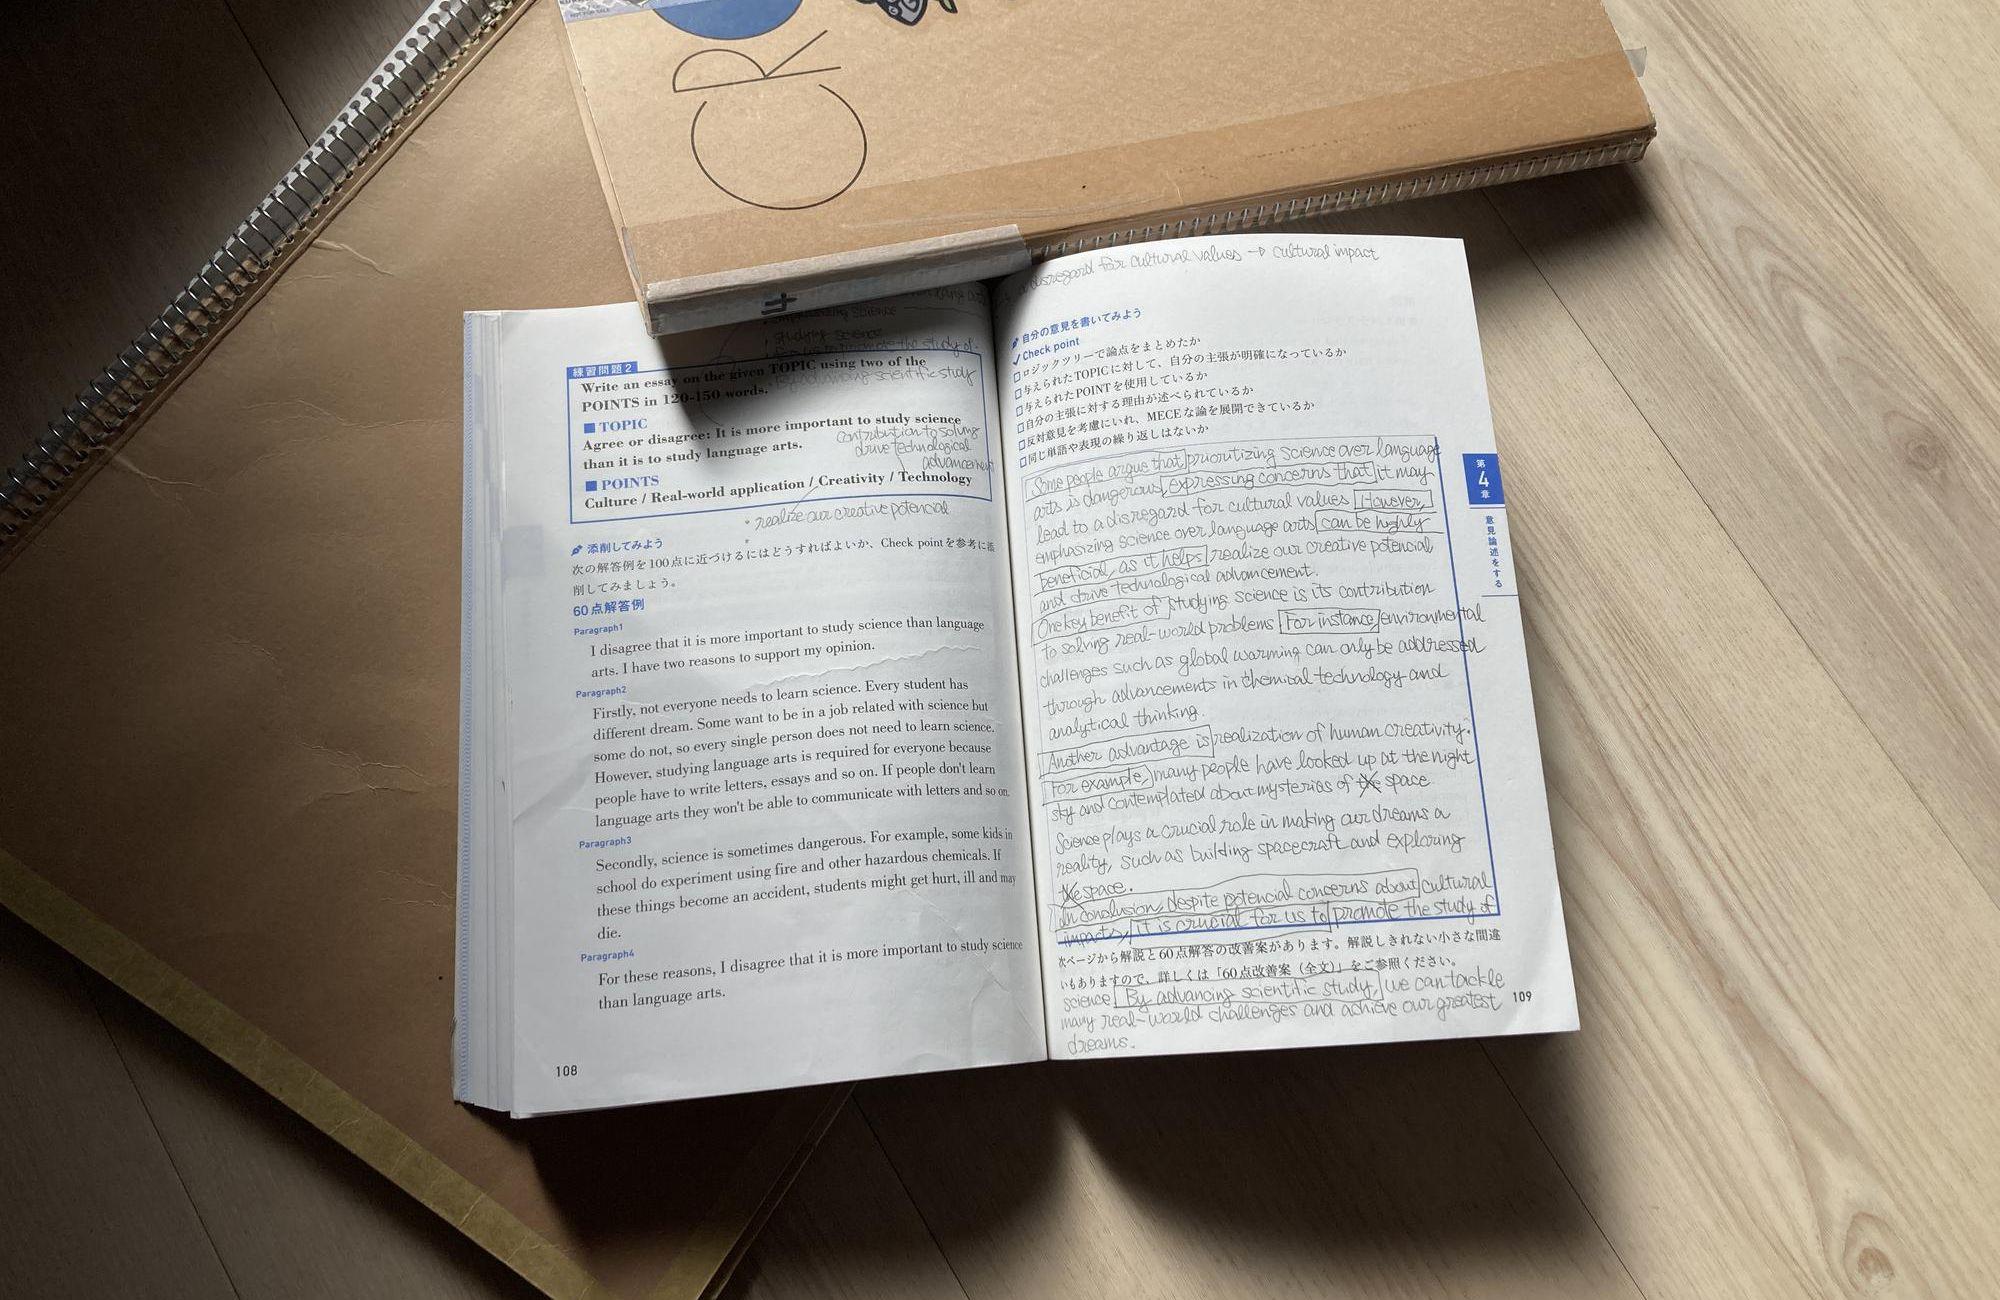 CRO
disregard for cultural values → cultural impact
emphasizing science
studying science
promote the study of
advancing scientific study
練習問題2
Write an essay on the given TOPIC using two of the
POINTS in 120-150 words.
■ TOPIC
Agree or disagree: It is more important to study science
than it is to study language arts.
contribution to solving
drive technological
advancement
■ POINTS
Culture / Real-world application / Creativity / Technology
• realize our creative potencial
添削してみよう
次の解答例を100点に近づけるにはどうすればよいか、Check pointを参考に添
削してみましょう。
60点解答例
Paragraph1
I disagree that it is more important to study science than language
arts. I have two reasons to support my opinion.
Paragraph2
Firstly, not everyone needs to learn science. Every student has
different dream. Some want to be in a job related with science but
some do not, so every single person does not need to learn science.
However, studying language arts is required for everyone because
people have to write letters, essays and so on. If people don't learn
language arts they won't be able to communicate with letters and so on.
Paragraph3
Secondly, science is sometimes dangerous. For example, some kids in
school do experiment using fire and other hazardous chemicals. If
these things become an accident, students might get hurt, ill and may
die.
Paragraph4
For these reasons, I disagree that it is more important to study science
than language arts.
108
自分の意見を書いてみよう
✓Check point
□ロジックツリーで論点をまとめたか
□与えられたTOPICに対して、自分の主張が明確になっているか
□与えられたPOINTを使用しているか
□自分の主張に対する理由が述べられているか
□反対意見を考慮にいれ、MECEな論を展開できているか
□同じ単語や表現の繰り返しはないか
Some people argue that prioritizing science over language
arts is dangerous, expressing concerns that it may
lead to a disregard for cultural values. However,
emphasizing science over language arts can be highly
beneficial, as it helps realize our creative potencial
and drive technological advancement.
One key benefit of studying science is its contribution
to solving real-world problems. For instance, environmental
challenges such as global warming can only be addressed
through advancements in chemical technology and
analytical thinking.
Another advantage is realization of human creativity.
For example, many people have looked up at the night
sky and contemplated about mysteries of the space.
Science plays a crucial role in making our dreams a
reality, such as building spacecraft and exploring
the space.
In conclusion, despite potencial concerns about cultural
impacts, it is crucial for us to promote the study of
次ページから解説と60点解答の改善案があります。解説しきれない小さな間違
いもありますので、詳しくは「60点改善案(全文)」をご参照ください。
science. By advancing scientific study, we can tackle
many real-world challenges and achieve our greatest
dreams.
109
第4章
意見論述をする